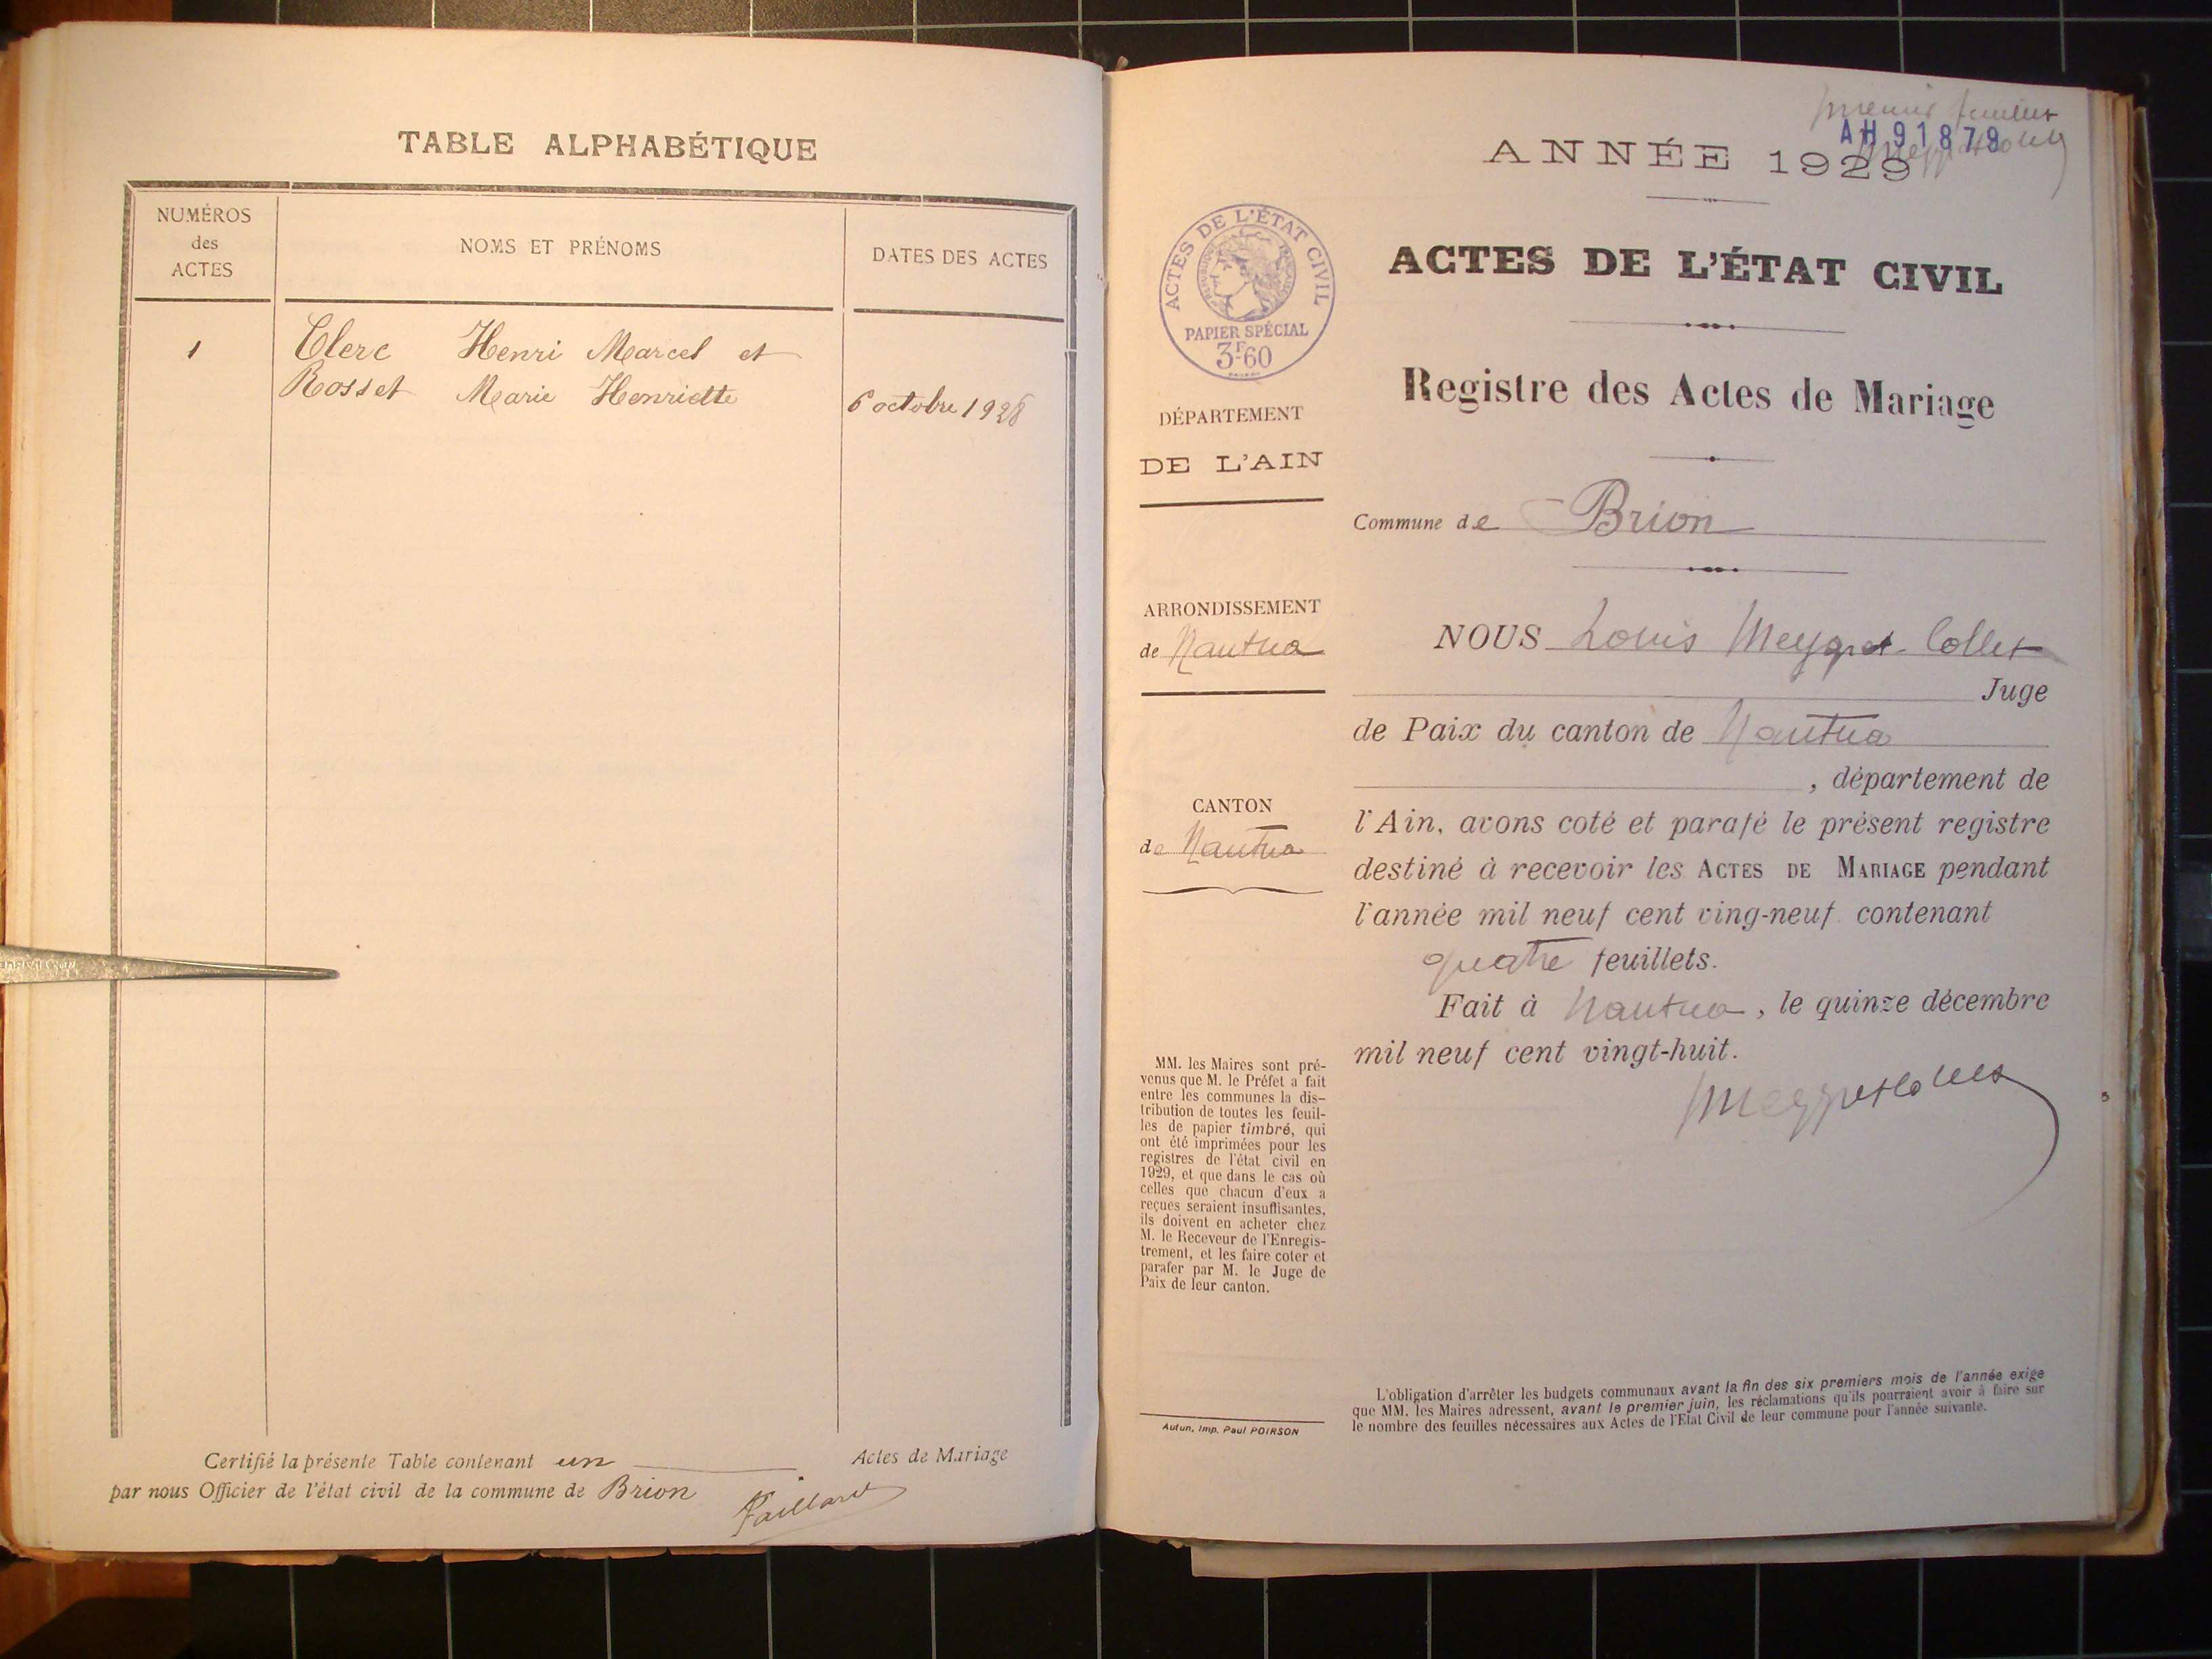 TABLE ALPHABÉTIQUE
NUMÉROS
des
ACTES
NOMS ET PRÉNOMS
DATES DES ACTES
1
Clerc Henri Marcel et
Rosset Marie Henriette
6 octobre 1928
Certifié la présente Table contenant un Actes de Mariage
par nous Officier de l'état civil de la commune de Brion
Paillard
premier feuillet
AH 91879
ANNÉE 1929
ACTES DE L'ÉTAT CIVIL
PAPIER SPÉCIAL
3F60
ACTES DE L'ÉTAT CIVIL
Registre des Actes de Mariage
DÉPARTEMENT
DE L'AIN
Commune de Brion
ARRONDISSEMENT
de Nantua
CANTON
de Nantua
NOUS Louis Meygret-Collet
Juge
de Paix du canton de Nantua
, département de
l'Ain, avons coté et parafé le présent registre
destiné à recevoir les ACTES DE MARIAGE pendant
l'année mil neuf cent ving-neuf contenant
quatre feuillets.
Fait à Nantua, le quinze décembre
mil neuf cent vingt-huit.
MM. les Maires sont pré-
venus que M. le Préfet a fait
entre les communes la dis-
tribution de toutes les feuil-
les de papier timbré, qui
ont été imprimées pour les
registres de l'état civil en
1929, et que dans le cas où
celles que chacun d'eux a
reçues seraient insuffisantes,
ils doivent en acheter chez
M. le Receveur de l'Enregis-
trement, et les faire coter et
parafer par M. le Juge de
Paix de leur canton.
Autun, Imp. Paul POIRSON
L'obligation d'arrêter les budgets communaux avant la fin des six premiers mois de l'année exige
que MM. les Maires adressent, avant le premier juin, les réclamations qu'ils pourraient avoir à faire sur
le nombre des feuilles nécessaires aux Actes de l'Etat Civil de leur commune pour l'année suivante.